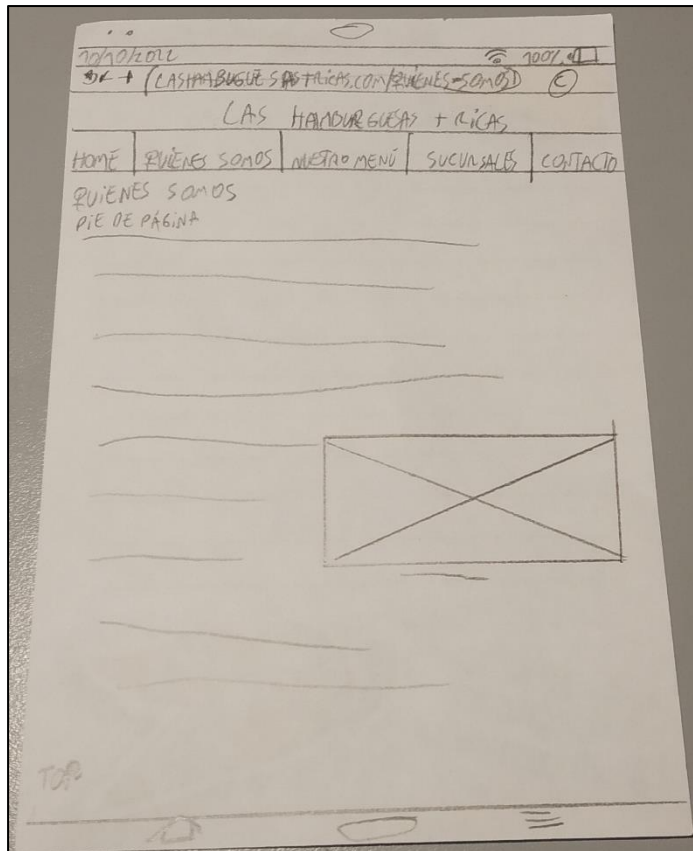 10/10/2022 100%
LASHAMBUGUESASTRICAS.COM/QUIENES-SOMOS
LAS HAMBURGUESAS + RICAS
HOME QUIENES SOMOS NUETRO MENÚ SUCURSALES CONTACTO
QUIENES SOMOS
PIE DE PÁGINA
TOP